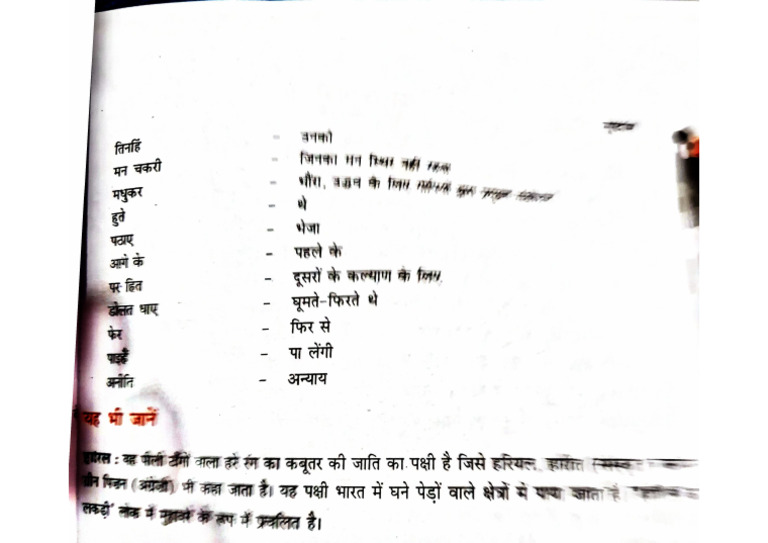 तिनहिं – उनको
मन चकरी – जिनका मन स्थिर नहीं रहता
मधुकर – भौंरा, उद्धव के लिए
हुते – थे
पठाए – भेजा
आगे के – पहले के
पर हित – दूसरों के कल्याण के लिए
डोलत धाए – घूमते-फिरते थे
फेर – फिर से
पाइहैं – पा लेंगी
अनीति – अन्याय
यह भी जानें
हारिल : यह पीली टाँगों वाला हरे रंग का कबूतर की जाति का पक्षी है जिसे हरियल, हारीत
ग्रीन पिजन (अंग्रेजी) भी कहा जाता है। यह पक्षी भारत में घने पेड़ों वाले क्षेत्रों में पाया जाता है।
लकड़ी' लोक में मुहावरे के रूप में प्रचलित है।